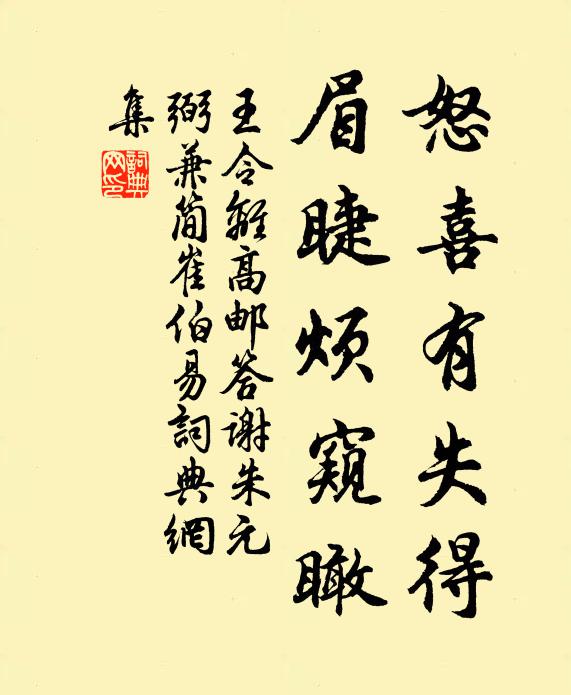 怒喜有失得
眉睫烦窥瞰
王令離高邮答谢朱元
弼兼简崔伯易詞典網
集
詞典
网印